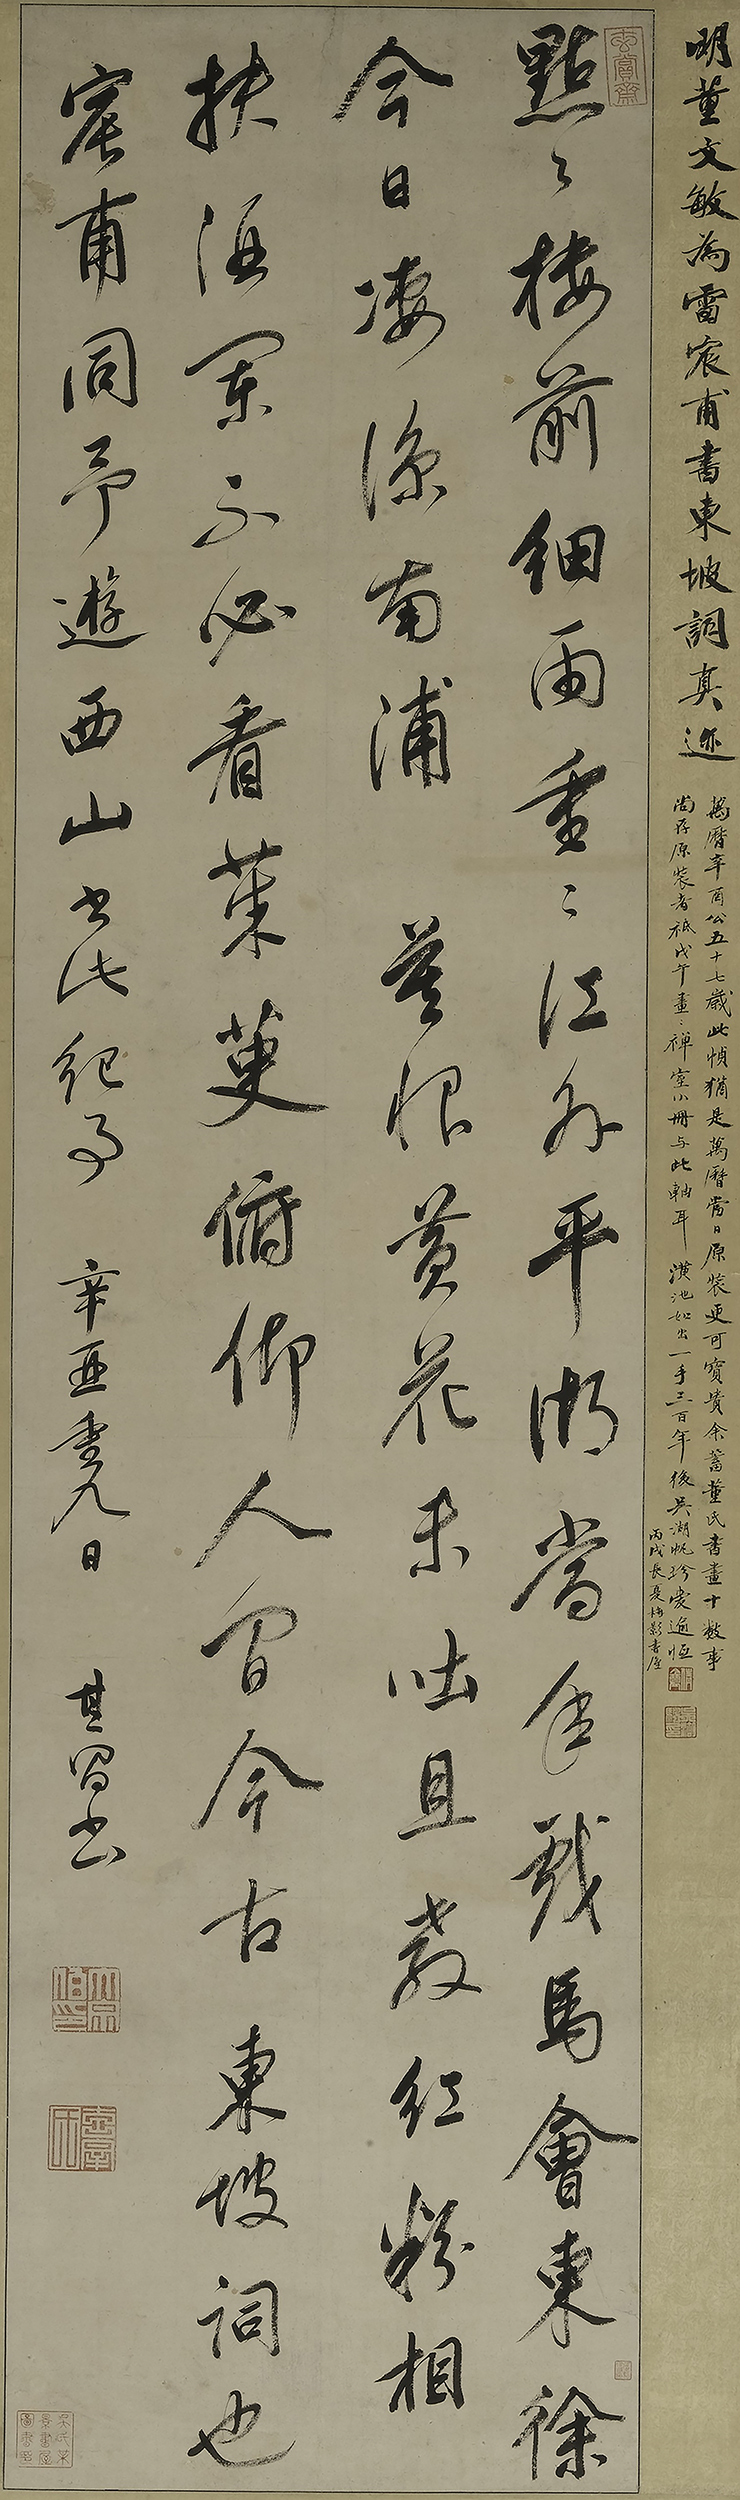 明董文敏為雷宸甫書東坡詞真迹
萬曆辛酉公五十七歲此幀猶是萬曆當日原裝更可寶貴余蓄董氏書畫十數事
尚存原裝者祗戊午畫禪室小冊与此軸耳潢池如出一手三百年後吳湖帆珍愛逾恒
丙戌長夏梅影書屋
點〻樓前細雨重〻江外平湖當年戲馬會東徐
今日凄涼南浦 莫恨黃花未吐且教紅粉相
扶酒闌不必看茱萸俯仰人間今古 東坡詞也
宸甫同予遊西山書此紀事 辛酉重九日 其昌書